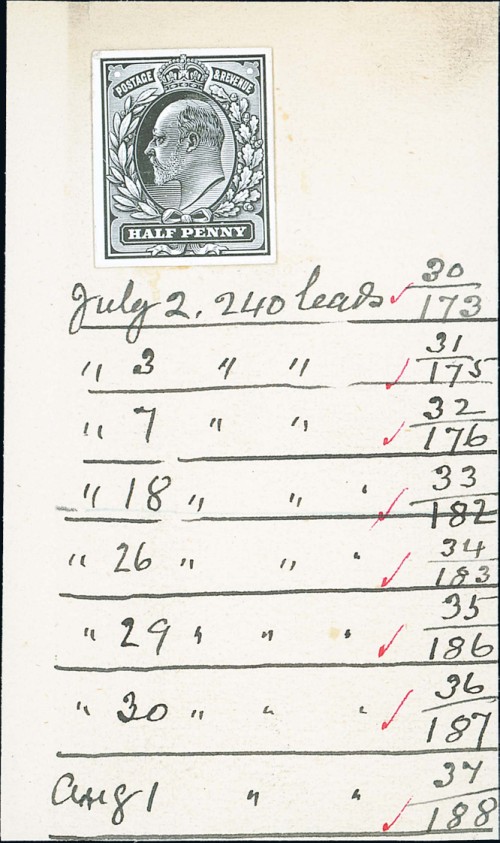 POSTAGE & REVENUE
HALF PENNY
July 2. 240 leads ✓ 30/173
" 3 " " ✓ 31/175
" 7 " " ✓ 32/176
" 18 " " " ✓ 33/182
" 26 " " " ✓ 34/183
" 29 " " " ✓ 35/186
" 30 " " " ✓ 36/187
Aug 1 " " ✓ 37/188